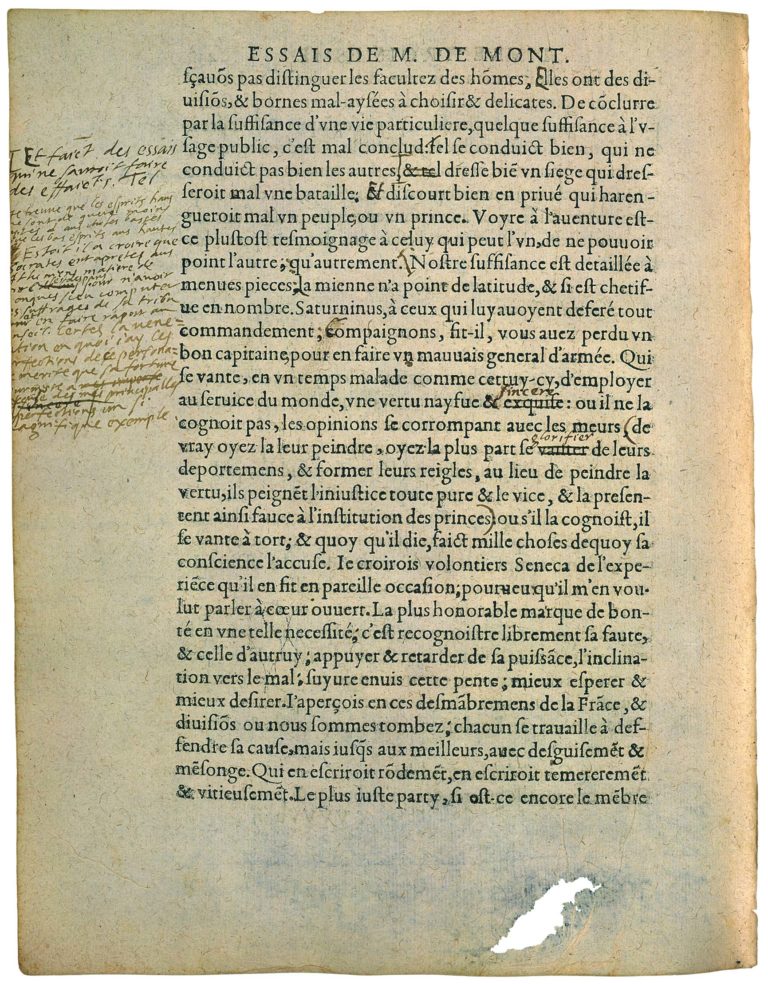 ESSAIS DE M. DE MONT.
sçauõs pas distinguer les facultez des hõmes; Elles ont des di-
uisiõs, & bornes mal-aysées à choisir & delicates. De cõclurre
par la suffisance d'vne vie particuliere, quelque suffisance à l'v-
sage public, c'est mal conclud: tel se conduict bien, qui ne
conduict pas bien les autres, & tel dresse biẽ vn siege qui dres-
seroit mal vne bataille; & discourt bien en priué qui haren-
gueroit mal vn peuple, ou vn prince. Voyre à l'auenture est-
ce plustost tesmoignage à celuy qui peut l'vn, de ne pouuoir
point l'autre, qu'autrement. Nostre suffisance est detaillée à
menues pieces, la mienne n'a point de latitude, & si est chetif-
ue en nombre. Saturninus, à ceux qui luy auoyent deferé tout
commandement; Compaignons, fit-il, vous auez perdu vn
bon capitaine, pour en faire vn mauuais general d'armée. Qui
se vante, en vn temps malade comme cettuy-cy, d'employer
sincere
au seruice du monde, vne vertu nayfue & exquise: ou il ne la
cognoit pas, les opinions se corrompant auec les meurs (de
glorifier
vray oyez la leur peindre, oyez la plus part se vanter de leurs
deportemens, & former leurs reigles, au lieu de peindre la
vertu, ils peignẽt l'iniustice toute pure & le vice, & la presen-
tent ainsi fauce à l'institution des princes) ou s'il la cognoist, il
se vante à tort; & quoy qu'il die, faict mille choses dequoy sa
conscience l'accuse. Ie croirois volontiers Seneca de l'expe-
riẽce qu'il en fit en pareille occasion, pourueu qu'il m'en vou-
lut parler à cœur ouuert. La plus honorable marque de bon-
té en vne telle necessité; c'est recognoistre librement sa faute,
& celle d'autruy; appuyer & retarder de sa puissãce, l'inclina-
tion vers le mal; suyure enuis cette pente; mieux esperer &
mieux desirer. I'aperçois en ces desmãbremens de la Frãce, &
diuisiõs ou nous sommes tombez; chacun se trauaille à def-
fendre sa cause, mais iusq̃s aux meilleurs, auec desguisemẽt &
mẽsonge. Qui en escriroit rõdemẽt, en escriroit temereremẽt
& vitieusemẽt. Le plus iuste party, si est-ce encore le mẽbre
Et faict des essais
qui ne sauroit faire
des effaicts. Tel
que les esprits haus
aus choses basses
que les bas esprits aus hautes
Estoit il a croire que
Socrates
pour n'avoir
suffrages de sa tribu
en faire raport au
Certes la vene
ration en quoi j'ay les
perfections de ce persona
merite que sa fortune
principalles
perfections un si
magnifique exemple